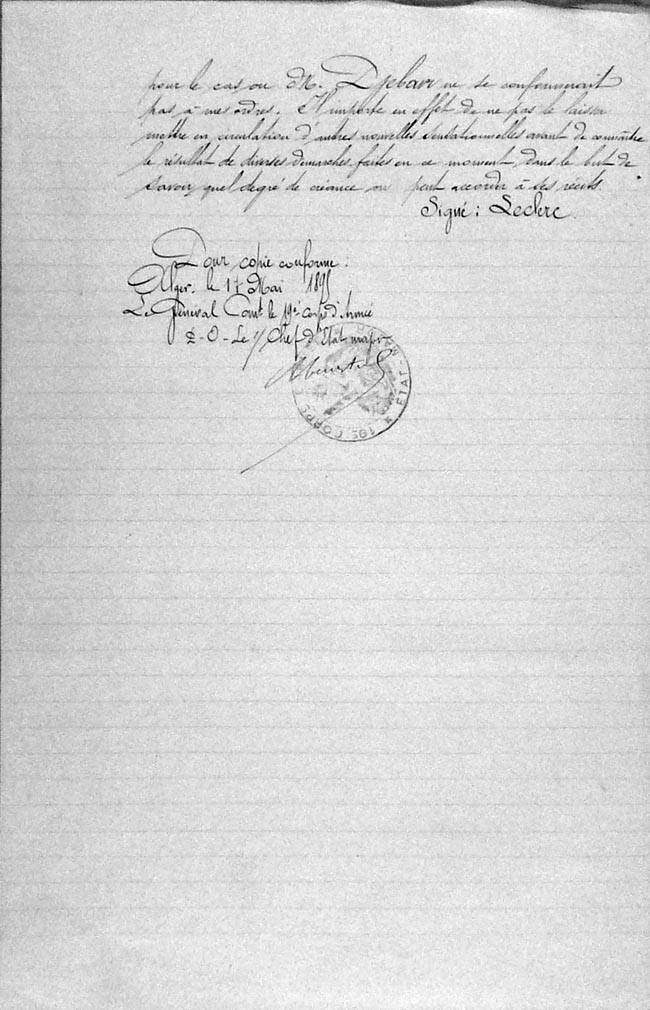 pour le cas ou M. Djebari ne se conformerait
pas à mes ordres. Il importe en effet de ne pas le laisser
mettre en circulation d'autres nouvelles sensationnelles avant de connaître
le résultat de diverses démarches faites en ce moment dans le but de
savoir quel degré de créance on peut accorder à ses récits.
Signé : Leclerc
Pour copie conforme :
Alger, le 17 Mai 1895
Le Général Comt le 19e corps d'Armée
P.O. Le Chef d'Etat major
ETAT-MAJOR
19E CORPS